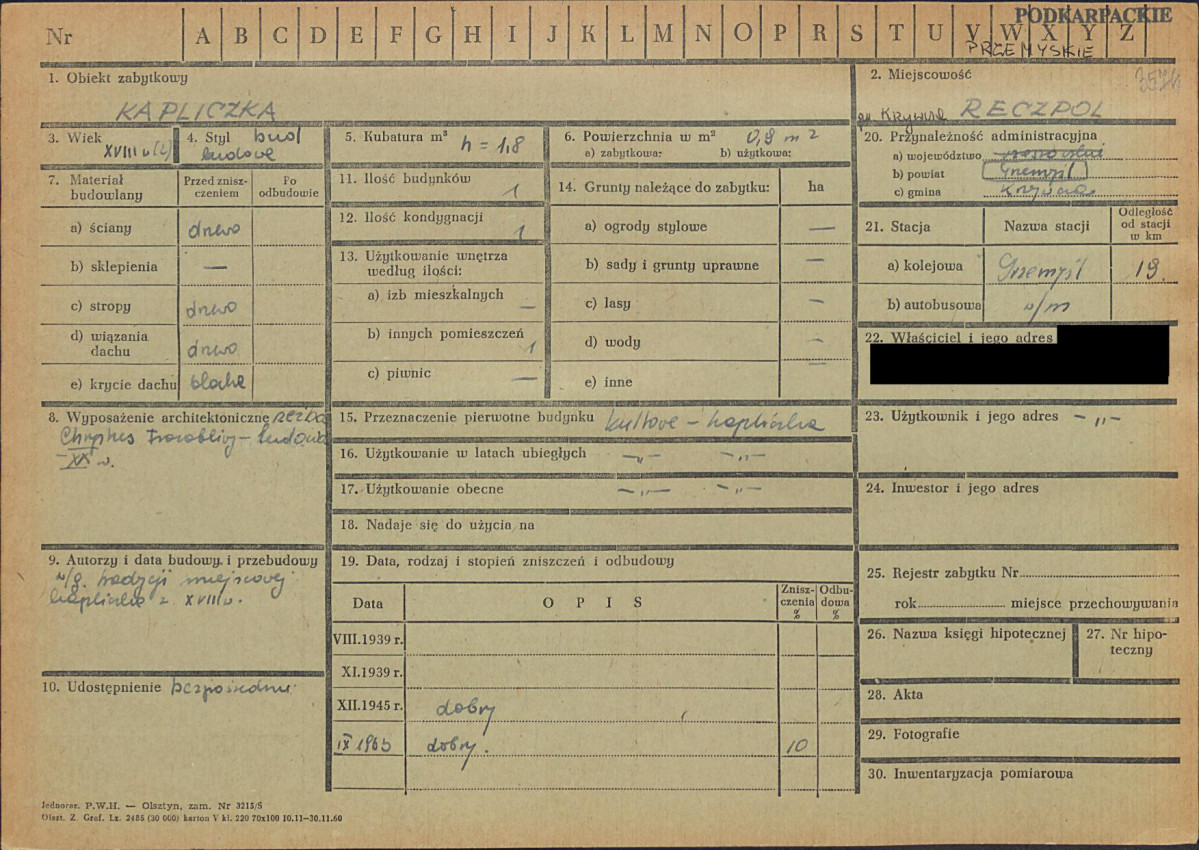 PODKARPACKIE
Nr A B C D E F G H I J K L M N O P R S T U V W X Y Z
PRZEMYSKIE
1. Obiekt zabytkowy
KAPLICZKA
2. Miejscowość
3574
RECZPOL
3. Wiek
XVIII w
4. Styl bud
ludowe
5. Kubatura m³
h = 1,8
6. Powierzchnia w m² 0,9 m 2
a) zabytkowa: b) użytkowa:
20. Przynależność administracyjna
a) województwo rzeszowskie
b) powiat Przemyśl
c) gmina Krzywcza
7. Materiał budowlany
Przed zniszczeniem
Po odbudowie
a) ściany drewno
b) sklepienia —
c) stropy drewno
d) wiązania dachu drewno
e) krycie dachu blacha
11. Ilość budynków 1
12. Ilość kondygnacji 1
13. Użytkowanie wnętrza
według ilości:
a) izb mieszkalnych —
b) innych pomieszczeń 1
c) piwnic —
14. Grunty należące do zabytku: ha
a) ogrody stylowe —
b) sady i grunty uprawne —
c) lasy —
d) wody —
e) inne —
21. Stacja
Nazwa stacji
Odległość
od stacji
w km
a) kolejowa Przemyśl 19
b) autobusowa w/m
22. Właściciel i jego adres
8. Wyposażenie architektoniczne rzeźba
Chrystus Frasobliwy – ludowa
XX w.
15. Przeznaczenie pierwotne budynku kultowe – kapliczka
16. Użytkowanie w latach ubiegłych –„– –„–
17. Użytkowanie obecne –„– –„–
18. Nadaje się do użycia na
23. Użytkownik i jego adres –„–
24. Inwestor i jego adres
9. Autorzy i data budowy, i przebudowy
w/g. tradycji miejscowej
kapliczka z XVIII w.
10. Udostępnienie bezpośrednie
19. Data, rodzaj i stopień zniszczeń i odbudowy
Data
O P I S
Zniszczenia %
Odbudowa %
VIII.1939 r.
XI.1939 r.
XII.1945 r. dobry
IX 1965 dobry. 10
25. Rejestr zabytku Nr
rok miejsce przechowywania
26. Nazwa księgi hipotecznej
27. Nr hipoteczny
28. Akta
29. Fotografie
30. Inwentaryzacja pomiarowa
Jednoraz. P.W.H. — Olsztyn, zam. Nr 3215/S
Olszt. Z. Graf. Lz. 2485 (30 000) karton V kl. 220 70x100 10.11—30.11.60